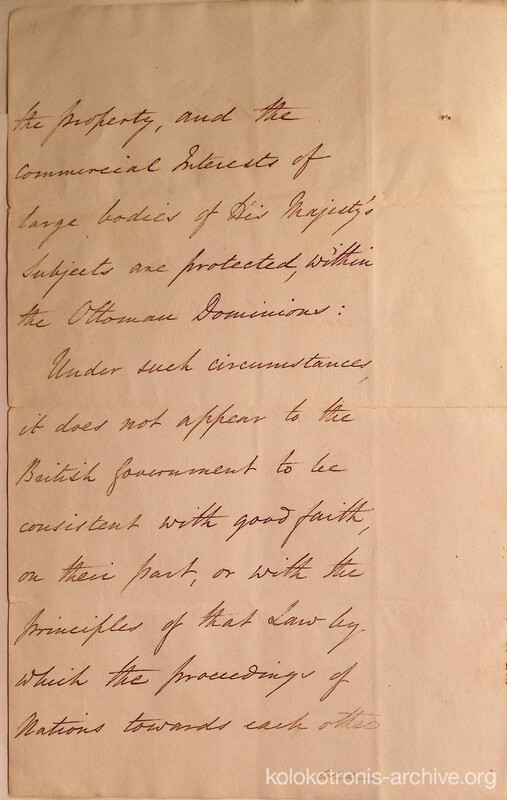 the property, and the
commercial Interests of
large bodies of His Majesty's
Subjects are protected, within
the Ottoman Dominions:
Under such circumstances,
it does not appear to the
British Government to be
consistent with good faith,
on their part, or with the
principles of that Law by
which the proceedings of
Nations towards each other
kolokotronis-archive.org